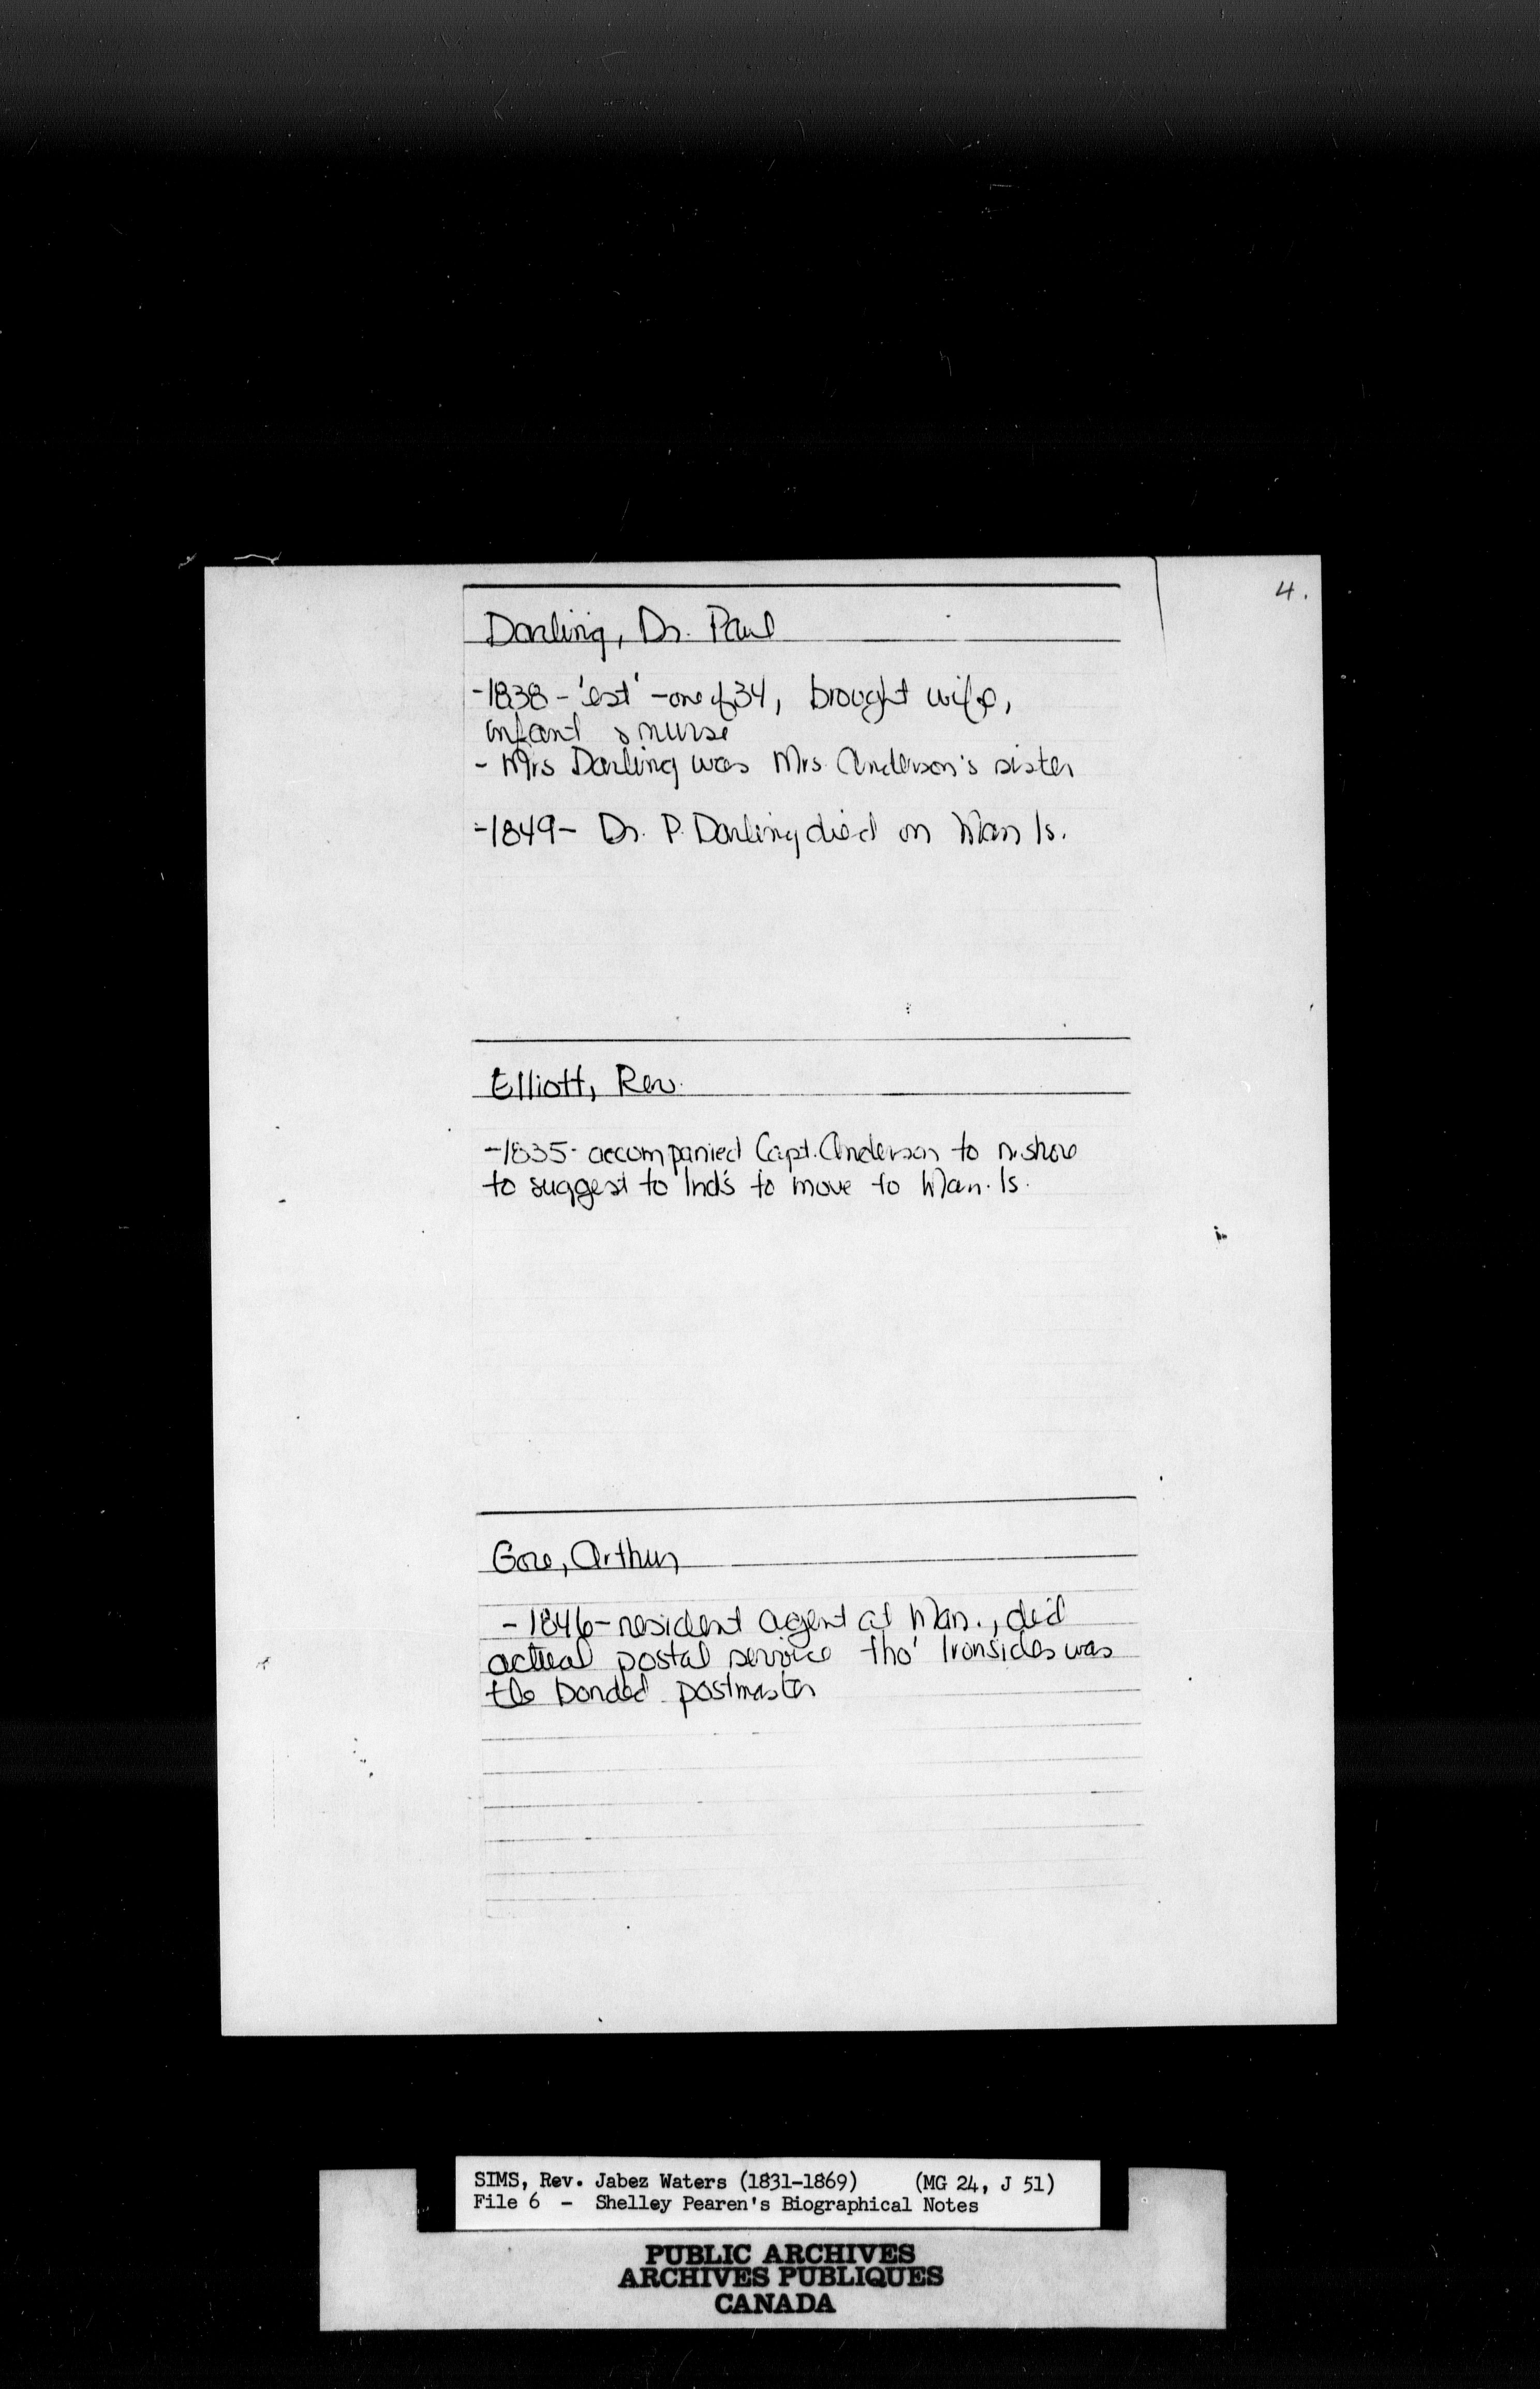 4.
Darling, Dr. Paul
-1838-'est'-one of 34, brought wife,
infant & nurse
- Mrs Darling was Mrs. Anderson's sister
-1849- Dr. P. Darling died on Man Is.
Elliott, Rev.
-1835- accompanied Capt. Anderson to n. shore
to suggest to Ind's to move to Man. Is.
Gore, Arthur
- 1846- resident agent at Man., did
actual postal service tho' Ironsides was
the bonded postmaster
SIMS, Rev. Jabez Waters (1831-1869) (MG 24, J 51)
File 6 - Shelley Pearen's Biographical Notes
PUBLIC ARCHIVES
ARCHIVES PUBLIQUES
CANADA